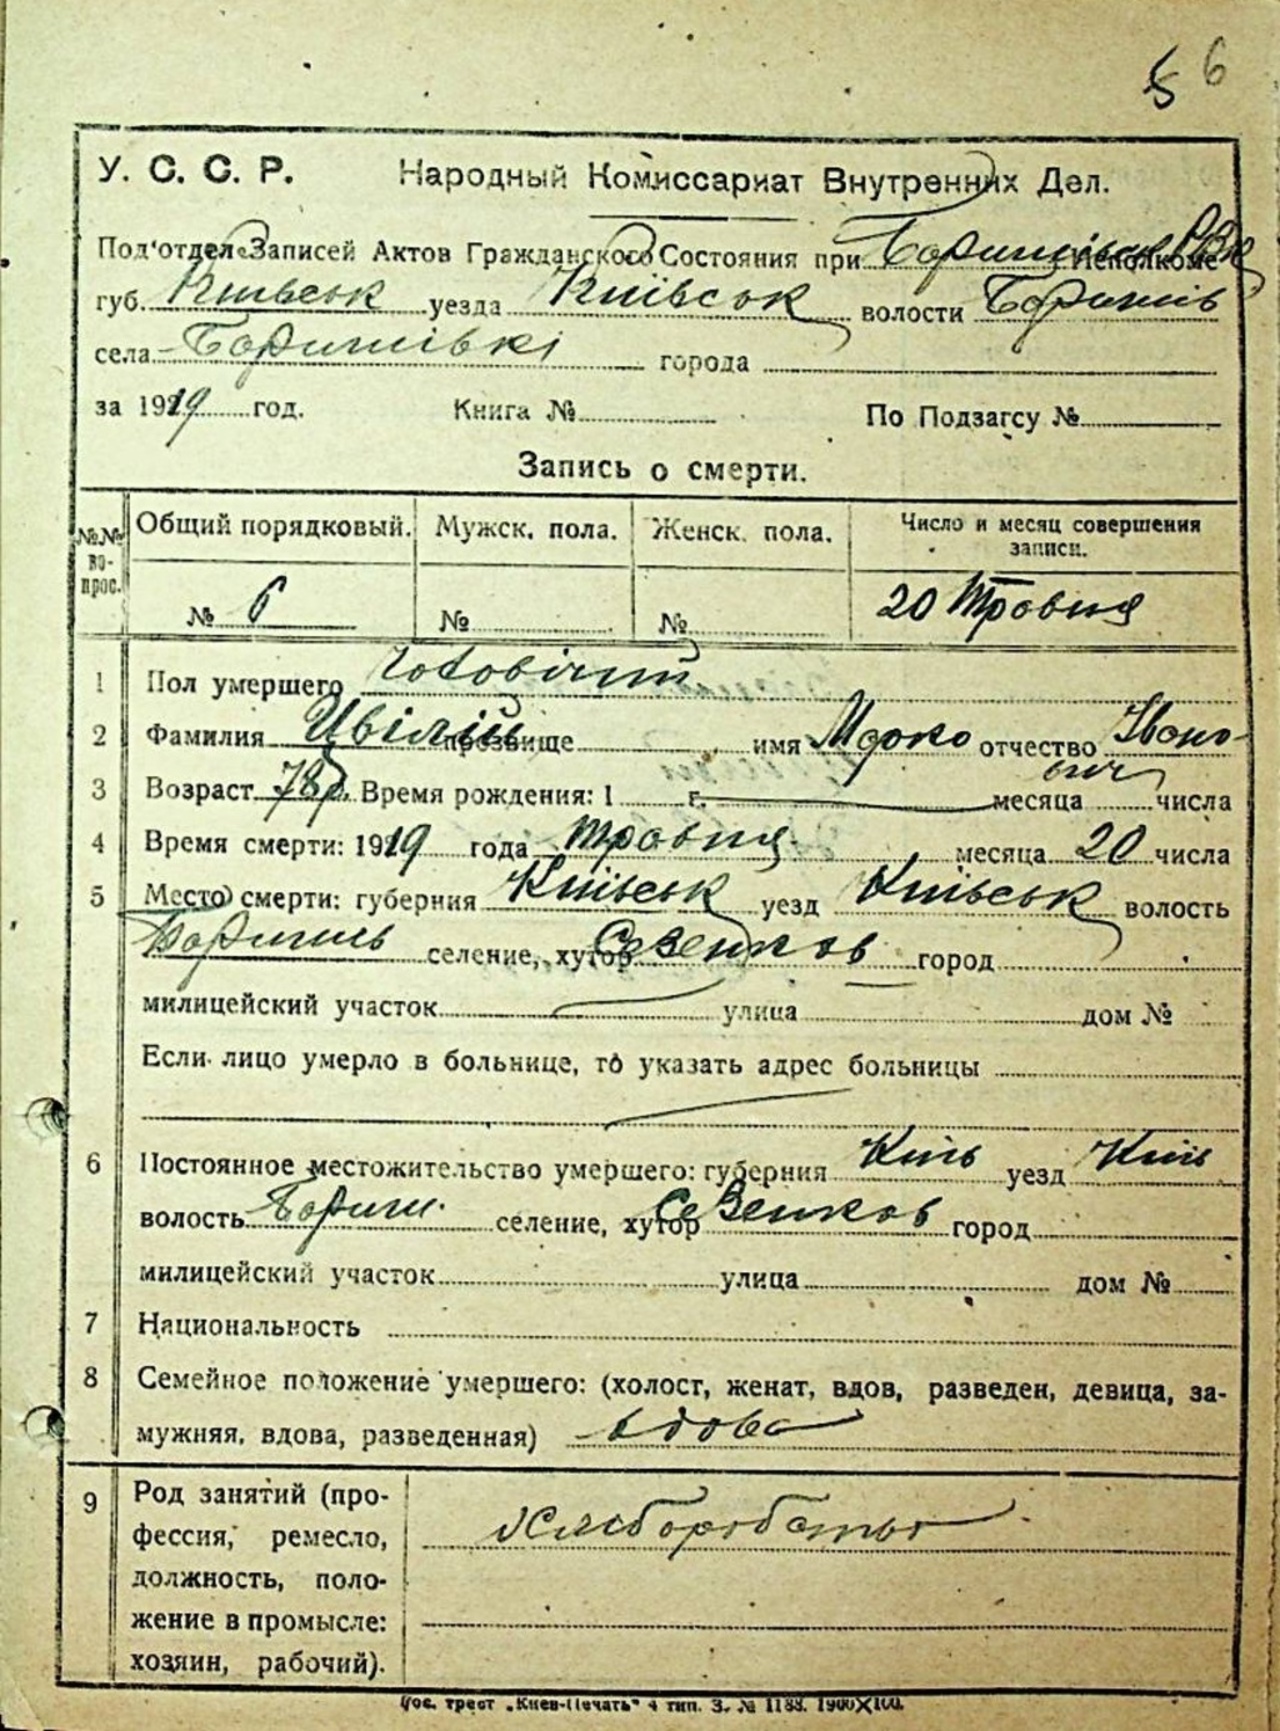 5 6
У. С. С. Р. Народный Комиссариат Внутренних Дел.
Под'отдел Записей Актов Гражданского Состояния при Исполкоме
губ. Київськ уезда Київськ волости Баришів
села Баришівкі города
за 1919 год. Книга № По Подзагсу №
Запись о смерти.
№№ во-прос. Общий порядковый. Мужск. пола. Женск. пола. Число и месяц совершения
записи.
№ 6 № № 20 Травня
1 Пол умершего чоловічий
2 Фамилия Цвілій прозвище имя Марко отчество Івано-
вич
3 Возраст 78 р. Время рождения: 1 г. месяца числа
4 Время смерти: 1919 года травня месяца 20 числа
5 Место смерти: губерния Київськ уезд Київськ волость
Баришів селение, хутор Сезенков город
милицейский участок улица дом №
Если лицо умерло в больнице, то указать адрес больницы
6 Постоянное местожительство умершего: губерния Київ уезд Київ
волость Бариш. селение, хутор Сезенков город
милицейский участок улица дом №
7 Национальность
8 Семейное положение умершего: (холост, женат, вдов, разведен, девица, за-
мужняя, вдова, разведенная) вдова
9 Род занятий (про-
фессия, ремесло,
должность, поло-
жение в промысле:
хозяин, рабочий).
Хліборобство
Гос. трест „Киев-Печать" 4 тип. З. № 1188. 1900×100.